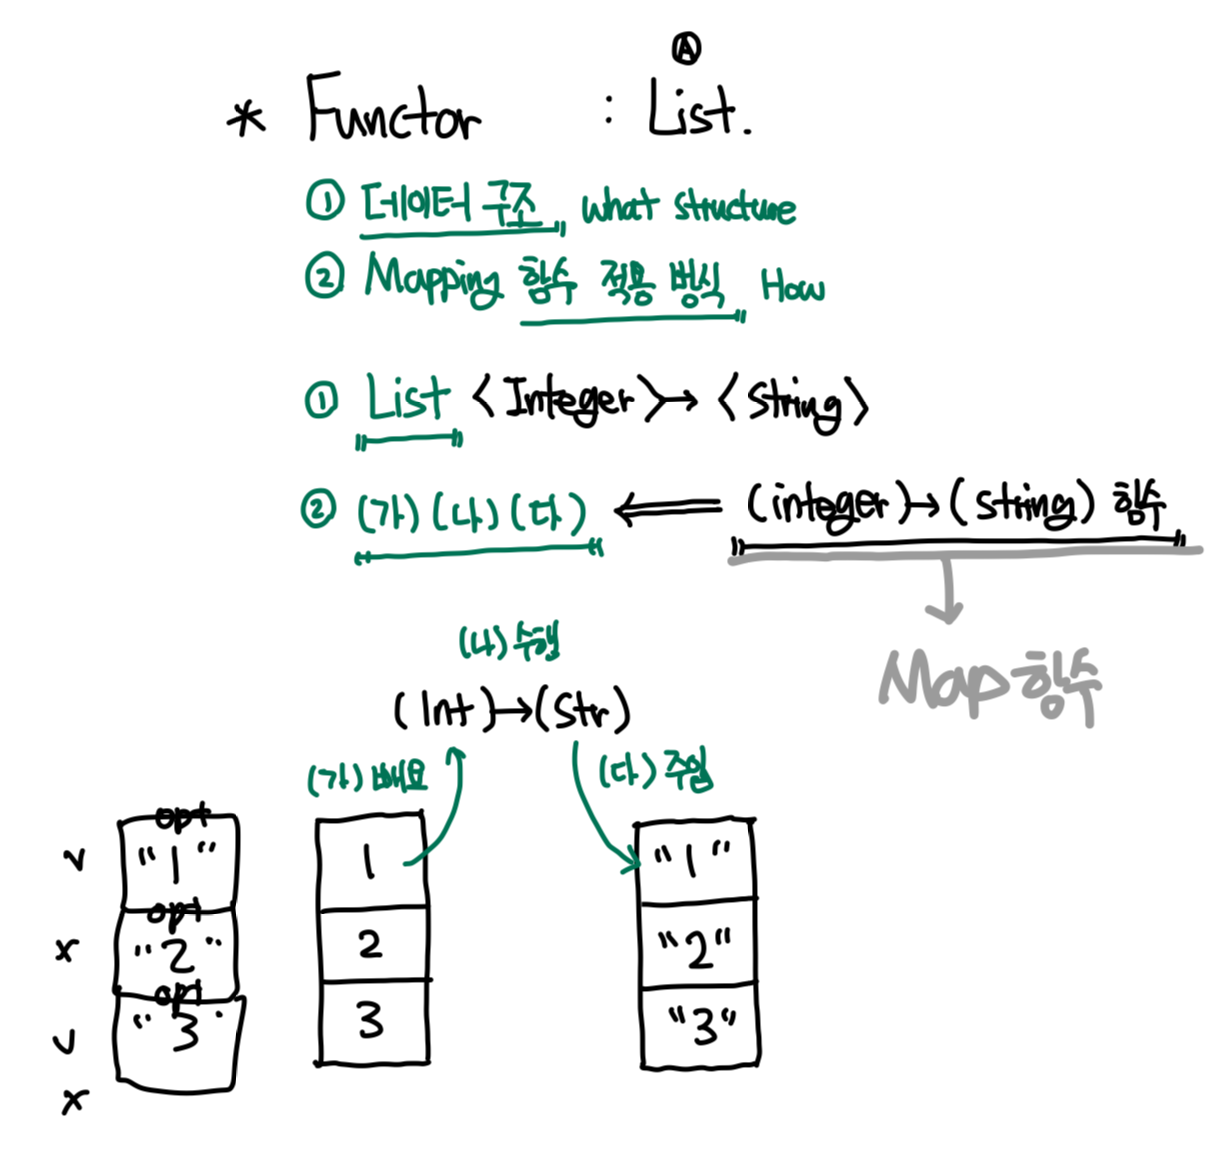 Ⓐ
* Functor : List.
① 데이터 구조 what structure
② Mapping 함수 적용 방식 How
① List <Integer> → <String>
② (가) (나) (다) ⇐ (integer) → (string) 함수
Map 함수
(나) 수행
(Int) → (Str)
(가) 빼요 (다) 주입
opt
v "1" 1 "1"
opt
x "2" 2 "2"
opt
v "3" 3 "3"
x